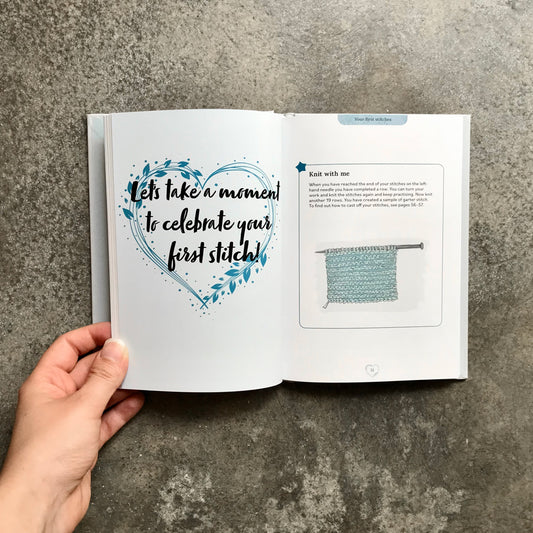 Let's take a moment
to celebrate your
first stitch!
Your first stitches
Knit with me
When you have reached the end of your stitches on the left-
hand needle you have completed a row. You can turn your
work and knit the stitches again and keep practising. Now knit
another 19 rows. You have created a sample of garter stitch.
To find out how to cast off your stitches, see pages 56-57.